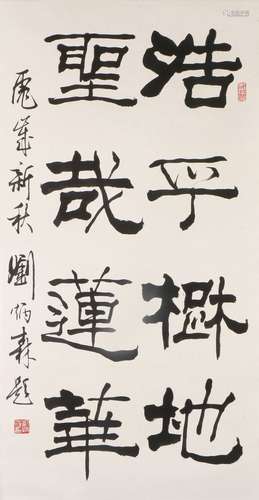 浩乎地
聖哉蓮華
虎歲新秋 劉炳森題